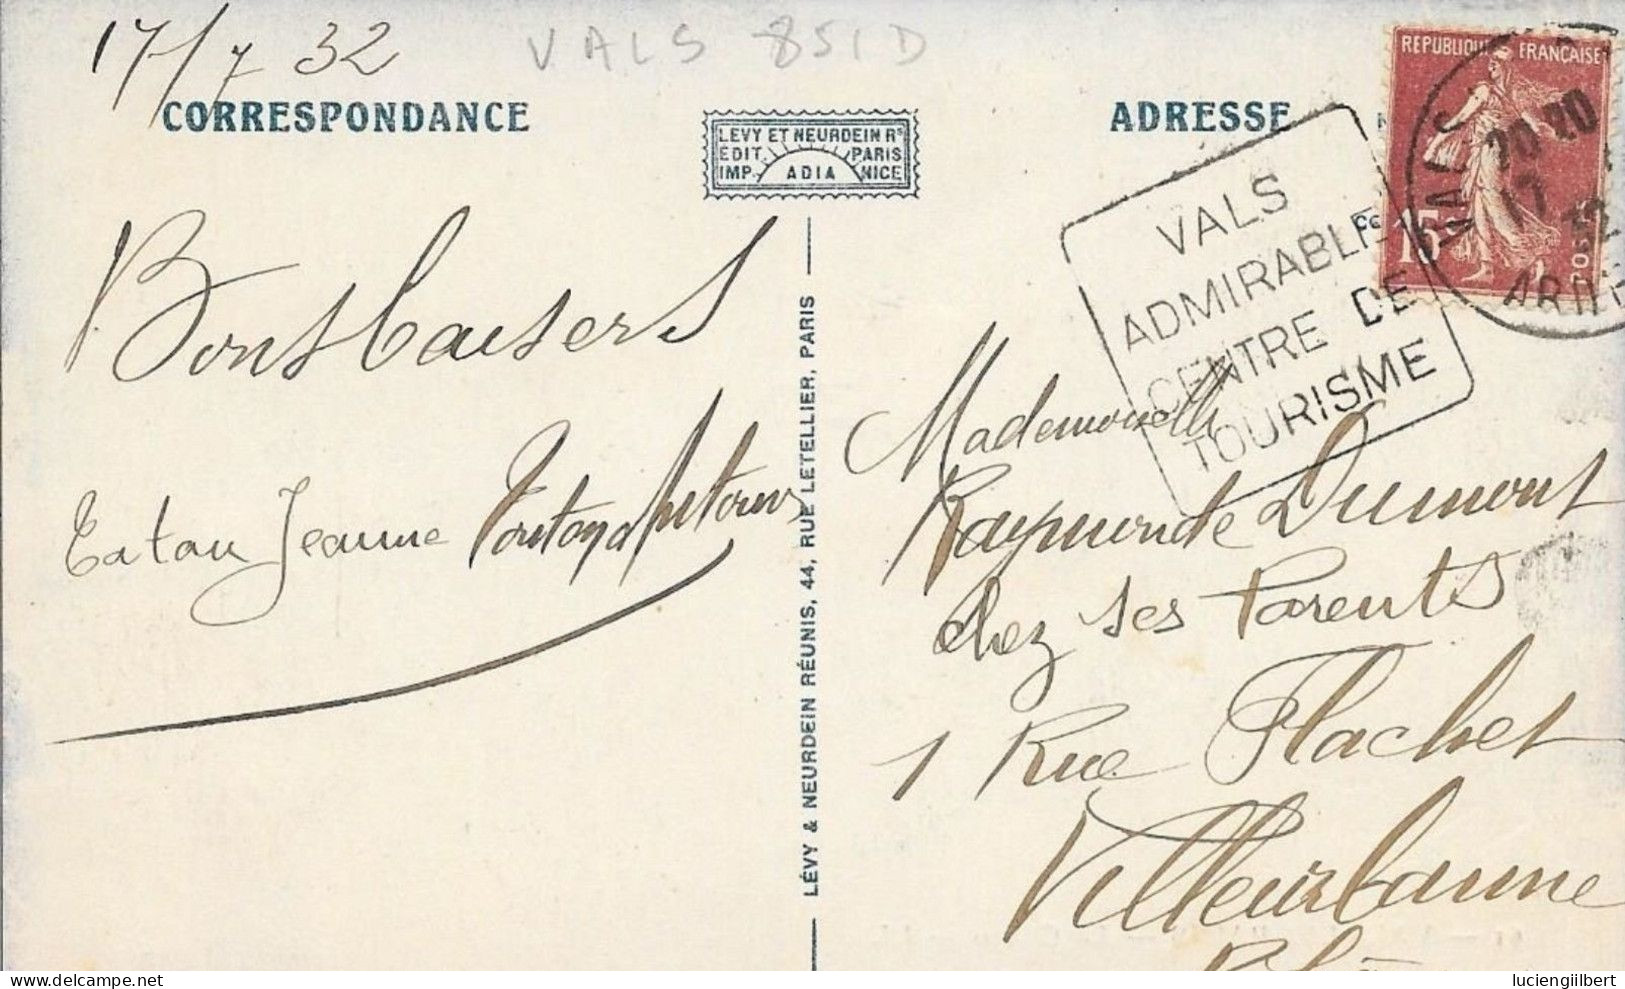 17/7 32
VALS 851 D
CORRESPONDANCE
LEVY ET NEURDEIN RS
EDIT. PARIS
IMP. ADIA NICE
ADRESSE
REPUBLIQUE FRANÇAISE
15
POSTES
VALS
20 20
17
32
ARDE
VALS
ADMIRABLE
CENTRE DE
TOURISME
Bons baisers
Tatan Jeanne Tonton
LÉVY & NEURDEIN RÉUNIS, 44, RUE LETELLIER, PARIS
Mademoiselle
Raymonde Dumont
chez ses Parents
1 Rue Flachet
Villeurbanne
luciengilbert